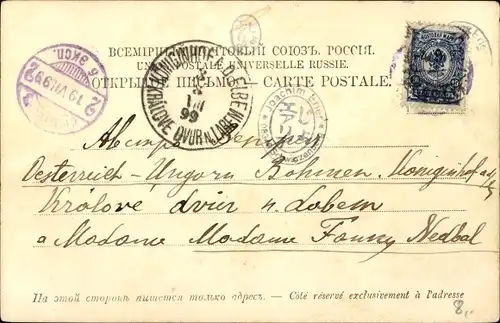 ВСЕМІРНЫЙ ПОЧТОВЫЙ СОЮЗЪ. РОССІЯ.
UNION POSTALE UNIVERSELLE RUSSIE.
ОТКРЫТОЕ ПИСЬМО — CARTE POSTALE.
6 ЭКСП.
19 VII 99
2 2
KÖNIGINHOF ELBE
VII
99
KRÁLOVÉ DVUR N. LABEM
Joachim
Австр Венгрія
Oesterreich - Ungarn Böhmen. Königinhof a/
Králové dvůr n. Labem
a Madame Madame Fanny Nedbal
На этой сторонѣ пишется только адресъ. — Côté réservé exclusivement à l'adresse
8,-